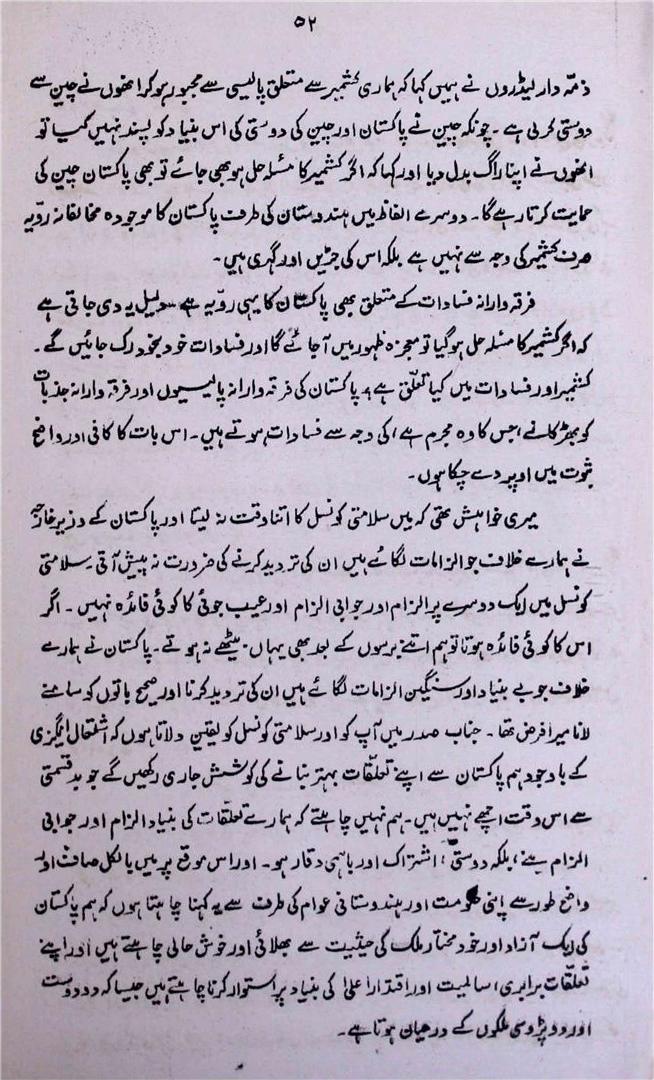 ۵۲
ذمّہ دار لیڈروں نے ہمیں کہا کہ ہماری کشمیر سے متعلق پالیسی سے مجبور ہو کر انھوں نے چین سے
دوستی کر لی ہے ۔ چونکہ چین نے پاکستان اور چین کی دوستی کی اس بنیاد کو پسند نہیں کیا تو
انھوں نے اپنا راگ بدل دیا اور کہا کہ اگر کشمیر کا مسئلہ حل ہو بھی جائے تو بھی پاکستان چین کی
حمایت کرتا رہے گا۔ دوسرے الفاظ میں ہندوستان کی طرف پاکستان کا موجودہ مخالفانہ رویّہ
صرف کشمیر کی وجہ سے نہیں ہے بلکہ اس کی جڑیں اور گہری ہیں ۔
فرقہ وارانہ فسادات کے متعلق بھی پاکستان کا یہی رویّہ ہے ۔ دلیل یہ دی جاتی ہے
کہ اگر کشمیر کا مسئلہ حل ہو گیا تو معجزہ ظہور میں آ جائے گا اور فسادات خود بخود رک جائیں گے ۔
کشمیر اور فسادات میں کیا تعلّق ہے ؟ پاکستان کی فرقہ وارانہ پالیسیوں اور فرقہ وارانہ جذبات
کو بھڑکانے، جس کا وہ مجرم ہے، کی وجہ سے فسادات ہوتے ہیں ۔ اس بات کا کافی اور واضح
ثبوت میں اوپر دے چکا ہوں ۔
میری خواہش تھی کہ میں سلامتی کونسل کا اتنا وقت نہ لیتا اور پاکستان کے وزیر خارجہ
نے ہمارے خلاف جو الزامات لگائے ہیں ان کی تردید کرنے کی ضرورت نہ پیش آتی ۔ سلامتی
کونسل میں ایک دوسرے پر الزام اور جوابی الزام اور عیب جوئی کا کوئی فائدہ نہیں ۔ اگر
اس کا کوئی فائدہ ہوتا تو ہم اتنے برسوں کے بعد بھی یہاں بیٹھے نہ ہوتے ۔ پاکستان نے ہمارے
خلاف جو بے بنیاد اور سنگین الزامات لگائے ہیں ان کی تردید کرنا اور صحیح باتوں کو سامنے
لانا میرا فرض تھا ۔ جناب صدر میں آپ کو اور سلامتی کونسل کو یقین دلاتا ہوں کہ اشتعال انگیزی
کے باوجود ہم پاکستان سے اپنے تعلّقات بہتر بنانے کی کوشش جاری رکھیں گے جو بدقسمتی
سے اس وقت اچھے نہیں ہیں ۔ ہم نہیں چاہتے کہ ہمارے تعلّقات کی بنیاد الزام اور جوابی
الزام بنے، بلکہ دوستی، اشتراک اور باہمی وقار ہو ۔ اور اس موقع پر میں بالکل صاف اور
واضح طور سے اپنی حکومت اور ہندوستانی عوام کی طرف سے یہ کہنا چاہتا ہوں کہ ہم پاکستان
کی ایک آزاد اور خود مختار ملک کی حیثیت سے بھلائی اور خوش حالی چاہتے ہیں اور اپنے
تعلّقات برابری، سالمیت اور اقتدارِ اعلیٰ کی بنیاد پر استوار کرنا چاہتے ہیں جیسا کہ دو دوست
اور دو پڑوسی ملکوں کے درمیان ہوتا ہے ۔